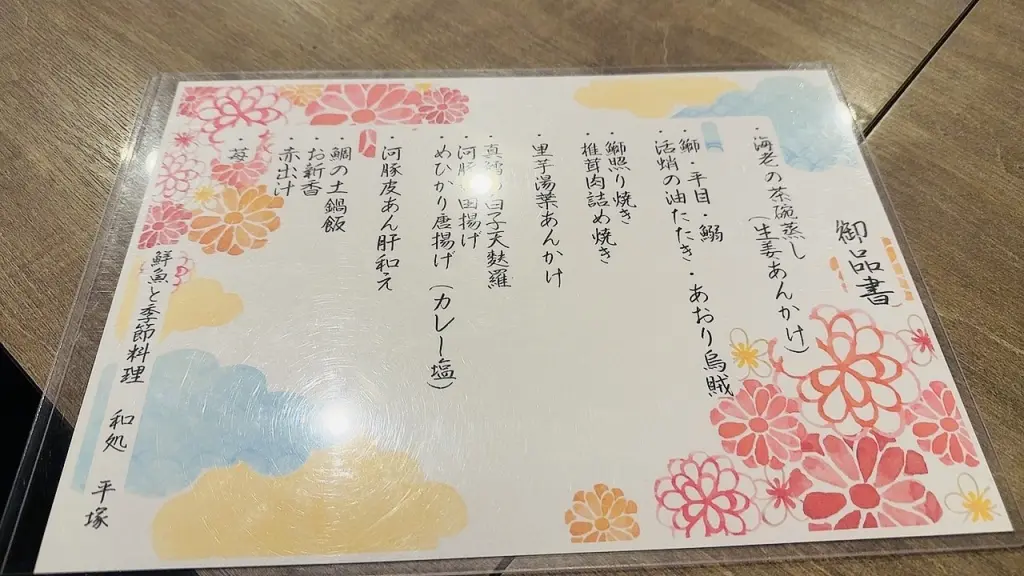 御品書
・海老の茶碗蒸し
(生姜あんかけ)
・鰤・平目・鰯
・活蛸の油たたき・あおり烏賊
・鰤照り焼き
・椎茸肉詰め焼き
・里芋湯葉あんかけ
・真鱈白子天麩羅
・河豚田揚げ
・めひかり唐揚げ(カレー塩)
・河豚皮あん肝和え
・鯛の土鍋飯
・お新香
・赤出汁
・苺
鮮魚と季節料理 和処 平塚